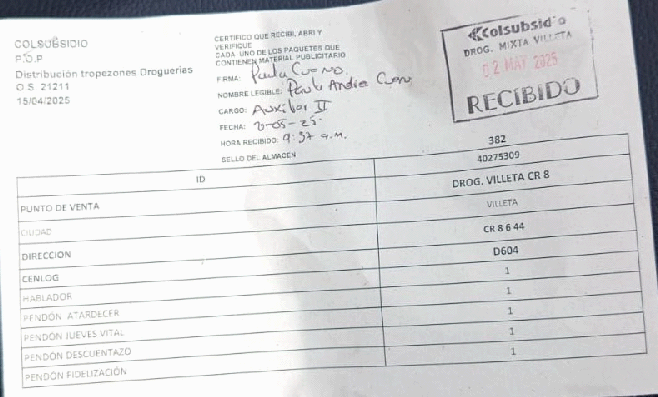 COLSUBSIDIO
P.O.P
Distribución tropezones Droguerías
O.S. 21211
15/04/2025
CERTIFICO QUE RECIBI, ABRI Y
VERIFIQUE
CADA UNO DE LOS PAQUETES QUE
CONTIENEN MATERIAL PUBLICITARIO
FIRMA: Paula Cuervo.
NOMBRE LEGIBLE: Paula Andrea
CARGO: Auxiliar II
FECHA: 2-05-25.
HORA RECIBIDO: 9:37 a.m.
SELLO DEL ALMACEN
Colsubsidio
DROG. MIXTA VILLETA
02 MAY 2025
RECIBIDO
382
ID 40275309
PUNTO DE VENTA DROG. VILLETA CR 8
CIUDAD VILLETA
DIRECCION CR 8 6 44
CENLOG D604
HABLADOR 1
PENDÓN ATARDECER 1
PENDÓN JUEVES VITAL 1
PENDÓN DESCUENTAZO 1
PENDÓN FIDELIZACIÓN 1